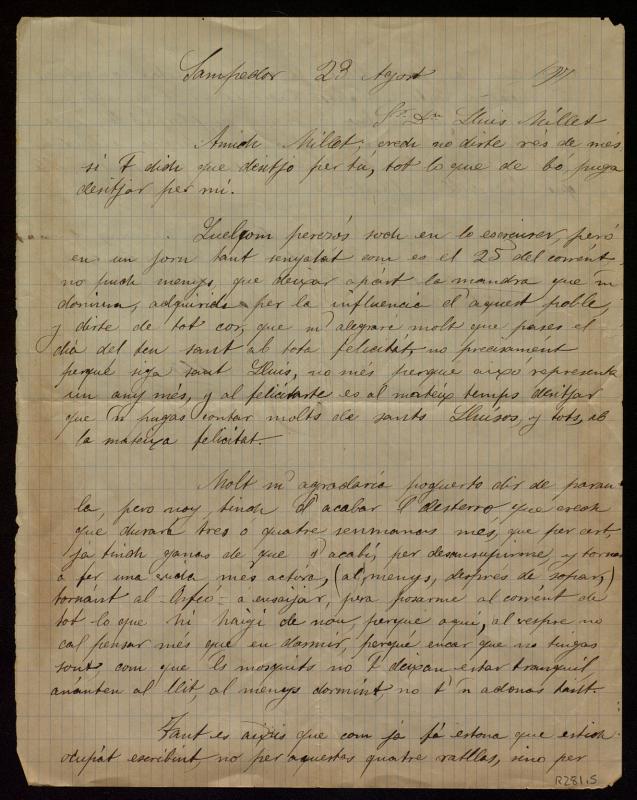 Sampedor 23 Agost 97
Sr. Dn. Lluis Millet
Amich Millet; crech no dirte rés de més
si t' dich que desitjo per tú, tot lo que de bo puga
desitjar per mi.
Quelcom perezós soch en lo escriurer, peró
en un jorn tant senyalát com es el 25 del corrént
no puch menys, que deixar apárt la mandra que 'm
domina, adquirida per la influencia d' aquest poble,
y dirte de tot cor, que m' alegraré molt que pases el
dia del teu sant ab tota felicitat, no precisamént
perqué siga sant Lluis, no més perque aixo representa
un any més, y al felicitarte es al mateix temps desitjar
que 'n pugas contar molts de sants Lluisos, y tots, ab
la mateixa felicitat.
Molt m' agradaria poguerto dir de parau-
la, pero noy, tinch d' acabar l' desterro que crech
que durará tres ó quatre senmanas més, que per cert,
ja tinch ganas de que s' acabi, per y tornar
a fer una vida més activa, (al menys, després de sopar,)
tornánt al -Orfeó- a ensaijar, pera posarme al corrént de
tot lo que hi haigi de nou, perque aquí, al vespre no
cal pensar més que en dormir, perqué encar que no tingas
son, com que ls mosquits no t' deixan estar tranquil,
anánten al llit, al menys dormínt, no t' n adonas tant.
Tant es aixís que com ja fá estona que estich
ocupát escribint, no per aquestas quatre ratllas, sino per
R281.5